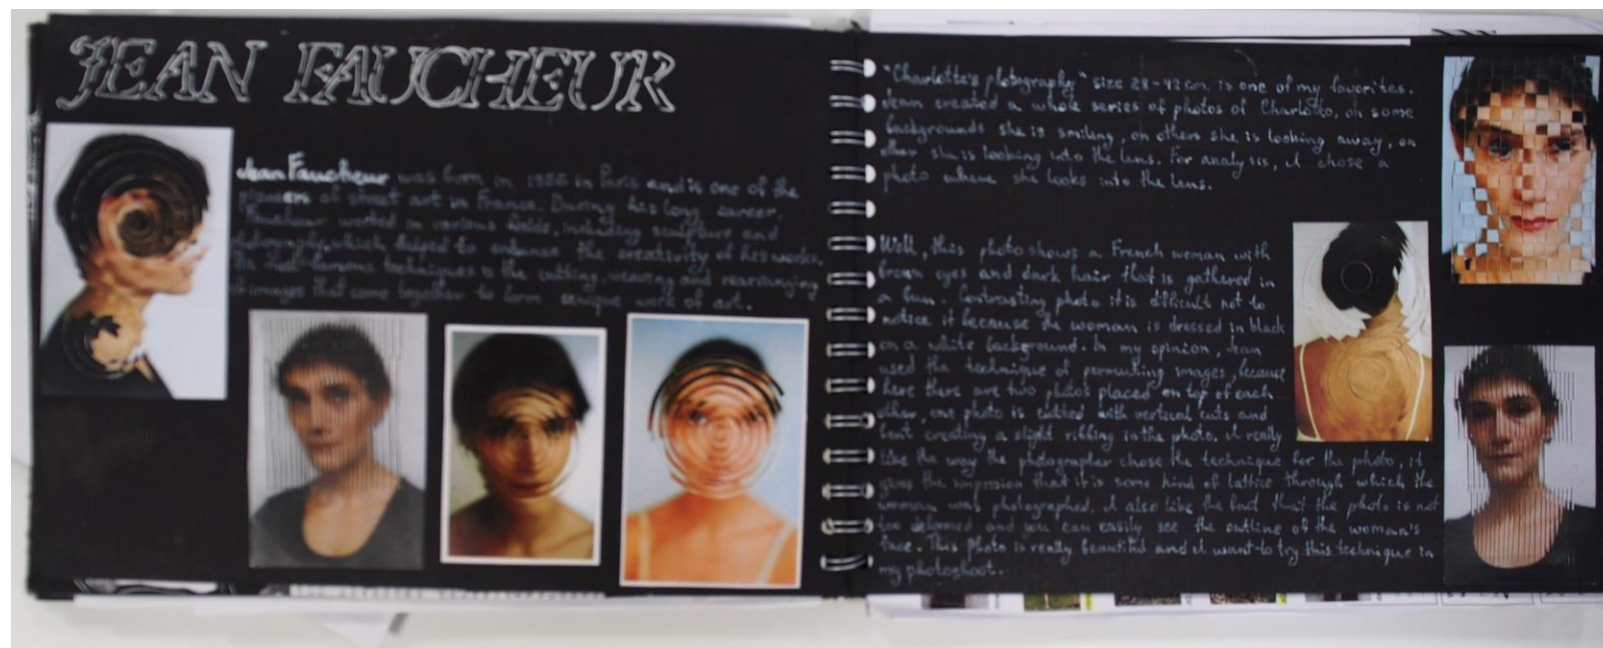 JEAN FAUCHEUR
Jean Faucheur was born in 1956 in Paris and is one of the
pioneers of street art in France. During his long career,
Faucheur worked in various fields, including sculpture and
photography, which helped to enhance the creativity of his works.
techniques is the cutting, weaving and rearranging
of images that come together to form unique work of art.
"Charlotte's photography" size 28-42 cm. is one of my favorites.
Jean created a whole series of photos of Charlotto, on some
backgrounds she is smiling, on others she is looking away, on
other she is looking into the lens. For analysis, I chose a
photo where she looks into the lens.
Well, this photo shows a French woman with
brown eyes and dark hair that is gathered in
a bun. Contrasting photo it is difficult not to
notice it because the woman is dressed in black
on a white background. In my opinion, Jean
used the technique of permuting images, because
here there are two photos placed on top of each
other, one photo is cutted with vertical cuts and
bent creating a slight ribbing in the photo. I really
like the way the photographer chose the technique for this photo, it
gives the impresion that it is some kind of lattice through which the
woman was photographed. I also like the fact that the photo is not
too deformed and you can easily see the outline of the woman's
face. This photo is really beautiful and I want to try this technique in
my photoshoot.